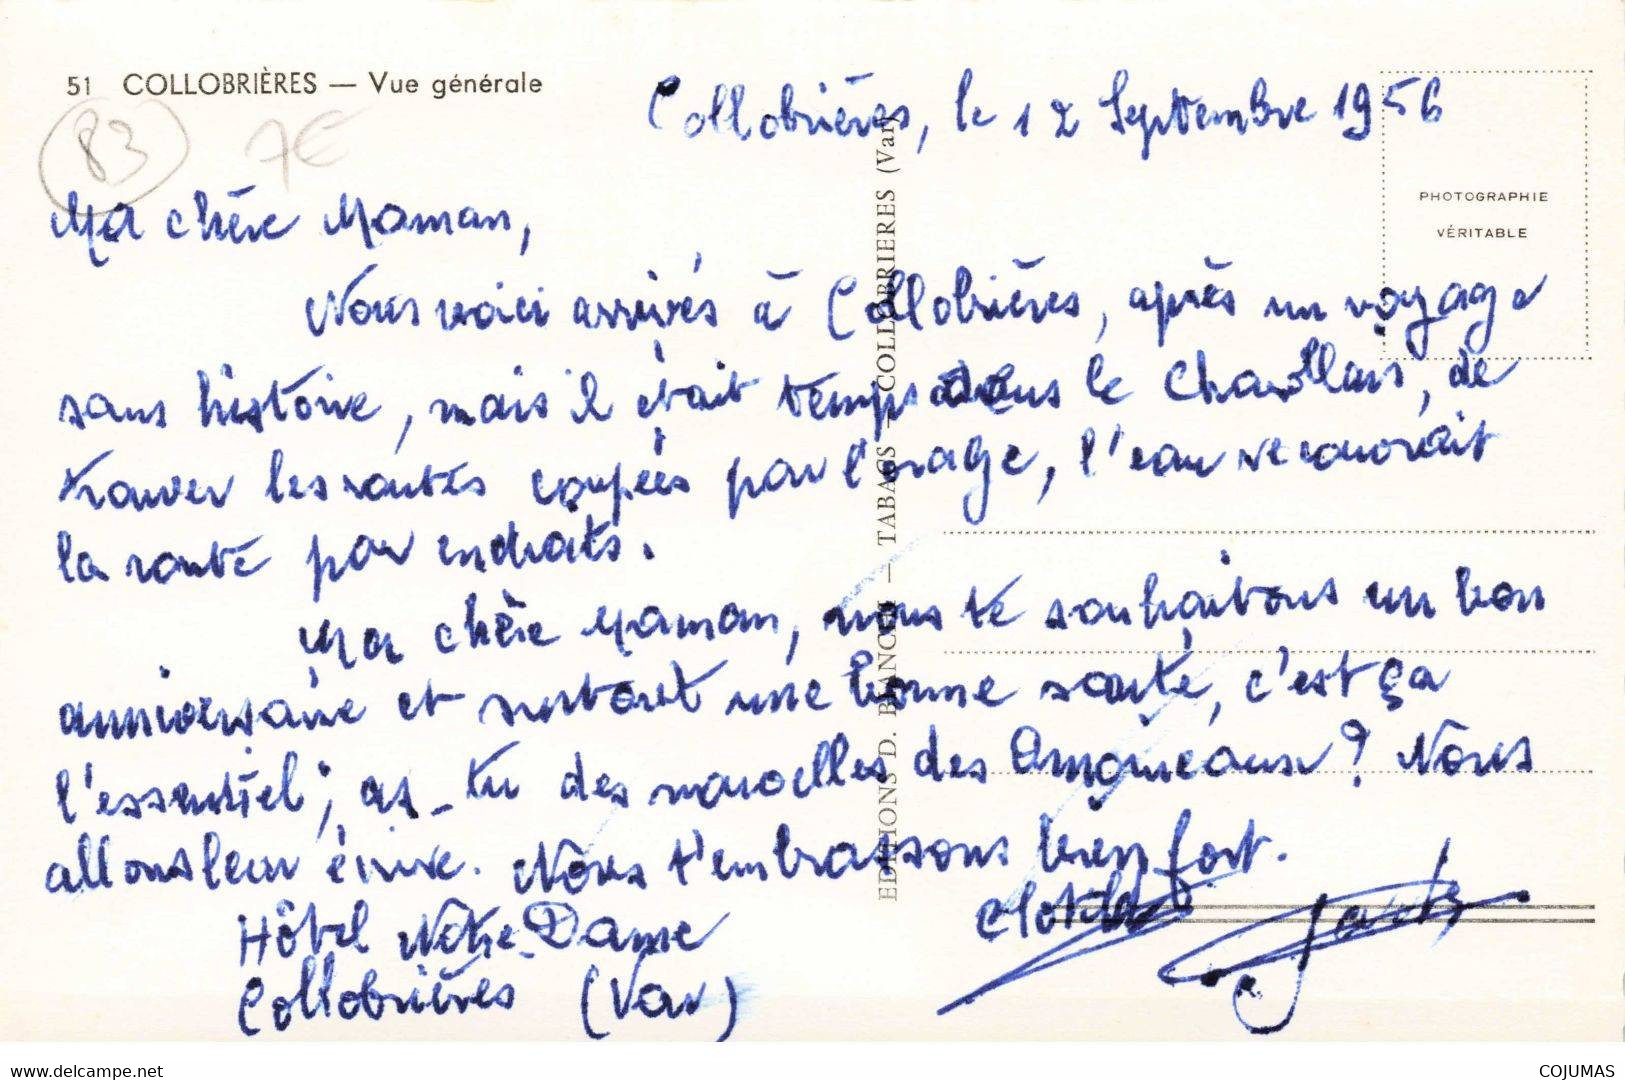 51 COLLOBRIÈRES — Vue générale
83 7€
Collobrières, le 12 Septembre 1956
PHOTOGRAPHIE
VÉRITABLE
Ma chère Maman,
Nous voici arrivés à Collobrières, après un voyage
sans histoire, mais il était temps dans le Charollais, de
trouver les routes coupées par l'orage, l'eau recouvrait
la route par endroits.
Ma chère Maman, nous te souhaitons un bon
anniversaire et surtout une bonne santé, c'est ça
l'essentiel ; as-tu des nouvelles des ? Nous
allons leur écrire. Nous t'embrassons bien fort.
Hôtel Notre-Dame
Collobrières (Var)
Clotilde
EDITIONS D. BIANCO — TABACS — COLLOBRIERES (Var)
www.delcampe.net
COJUMAS